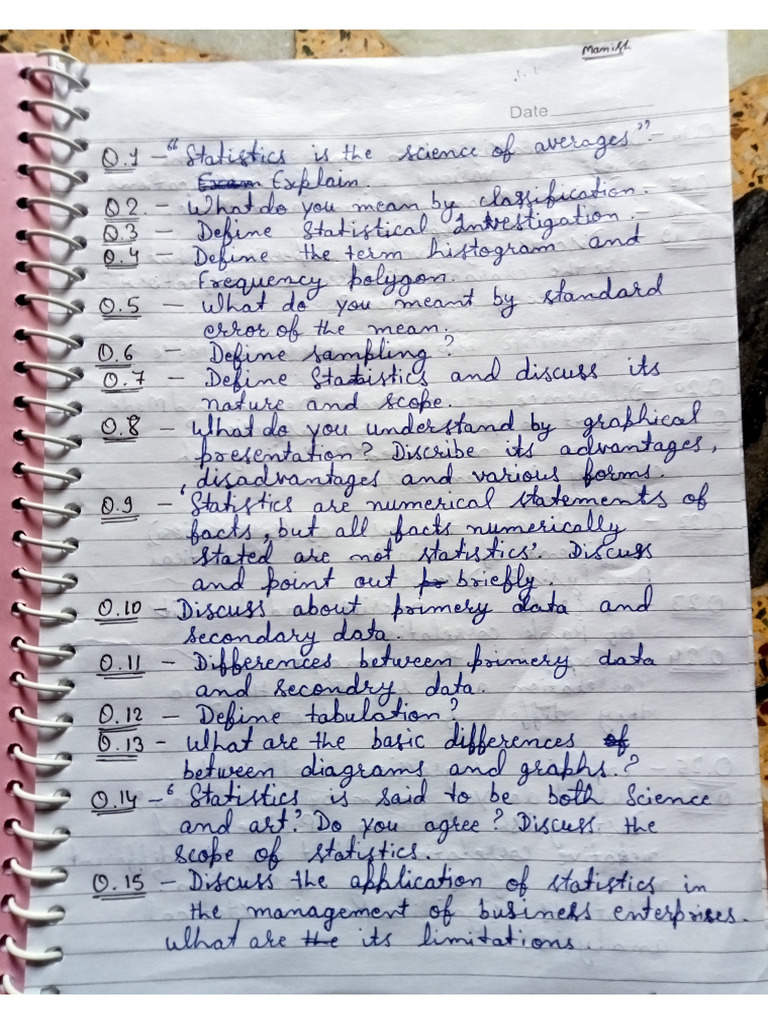 Manish
Date
Q.1 - "Statistics is the science of averages".
Explain.
Q2. - What do you mean by classification.
Q.3 - Define Statistical Investigation.
Q.4 - Define the term histogram and
Frequency polygon.
Q.5 - What do you meant by standard
error of the mean.
Q.6 - Define sampling?
Q.7 - Define Statistics and discuss its
nature and scope.
Q.8 - What do you understand by graphical
presentation? Discribe its advantages,
, disadvantages and various forms.
Q.9 - 'Statistics are numerical statements of
facts, but all facts numerically
stated are not statistics'. Discuss
and point out briefly.
Q.10 - Discuss about primery data and
secondary data.
Q.11 - Differences between primery data
and secondry data.
Q.12 - Define tabulation?
Q.13 - What are the basic differences
between diagrams and graphs.?
Q.14 - 'Statistics is said to be both Science
and art.' Do you agree? Discuss the
scope of statistics.
Q.15 - Discuss the application of statistics in
the management of business enterprises.
What are its limitations.